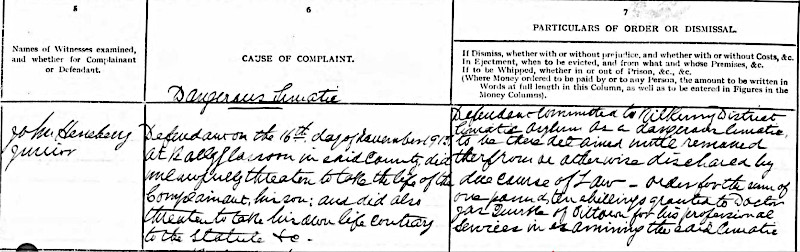 5
Names of Witnesses examined,
and whether for Complainant
or Defendant.
John Heneberg
junior
6
CAUSE OF COMPLAINT.
Dangerous Lunatic
Defendant on the 16th day of December 1913
at in said County did
unlawfully threaten to take the life of the
Complainant, his son; and did also
threaten to take his own life contrary
to the Statute &c -
7
PARTICULARS OF ORDER OR DISMISSAL.
If Dismiss, whether with or without prejudice, and whether with or without Costs, &c.
In Ejectment, when to be evicted, and from what and whose Premises, &c.
If to be Whipped, whether in or out of Prison, &c., &c.
(Where Money ordered to be paid by or to any Person, the amount to be written in
Words at full length in this Column, as well as to be entered in Figures in the
Money Columns).
Defendant Committed to Kilkenny District
Lunatic Asylum as a dangerous lunatic,
to be there detained until removed
therefrom or otherwise discharged by
due course of Law - order for the sum of
one pound ten shillings granted to Doctor
Jas Quirke of Piltown for his professional
Services in examining the said Lunatic